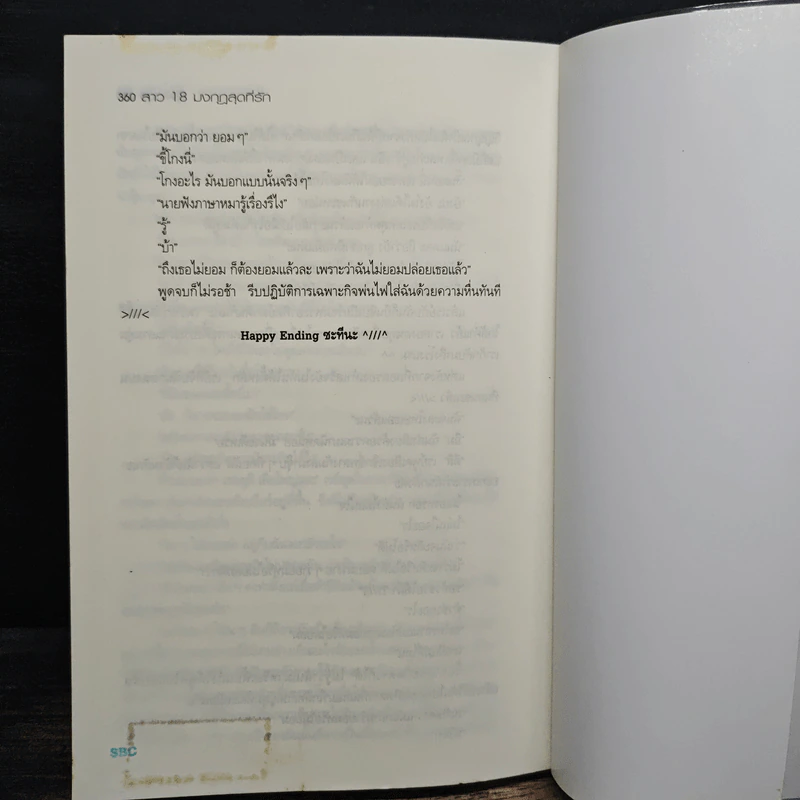 360 สาว 18 มงกุฎสุดที่รัก
"มันบอกว่า ยอมๆ"
"ขี้โกงนี่"
"โกงอะไร มันบอกแบบนั้นจริงๆ"
"นายฟังภาษาหมารู้เรื่องรึไง"
"รู้"
"บ้า"
"ถึงเธอไม่ยอม ก็ต้องยอมแล้วละ เพราะว่าฉันไม่ยอมปล่อยเธอแล้ว"
พูดจบก็ไม่รอช้า รีบปฏิบัติการเฉพาะกิจพ่นไฟใส่ฉันด้วยความหื่นทันที
>///<
Happy Ending ซะทีนะ ^///^
SBC